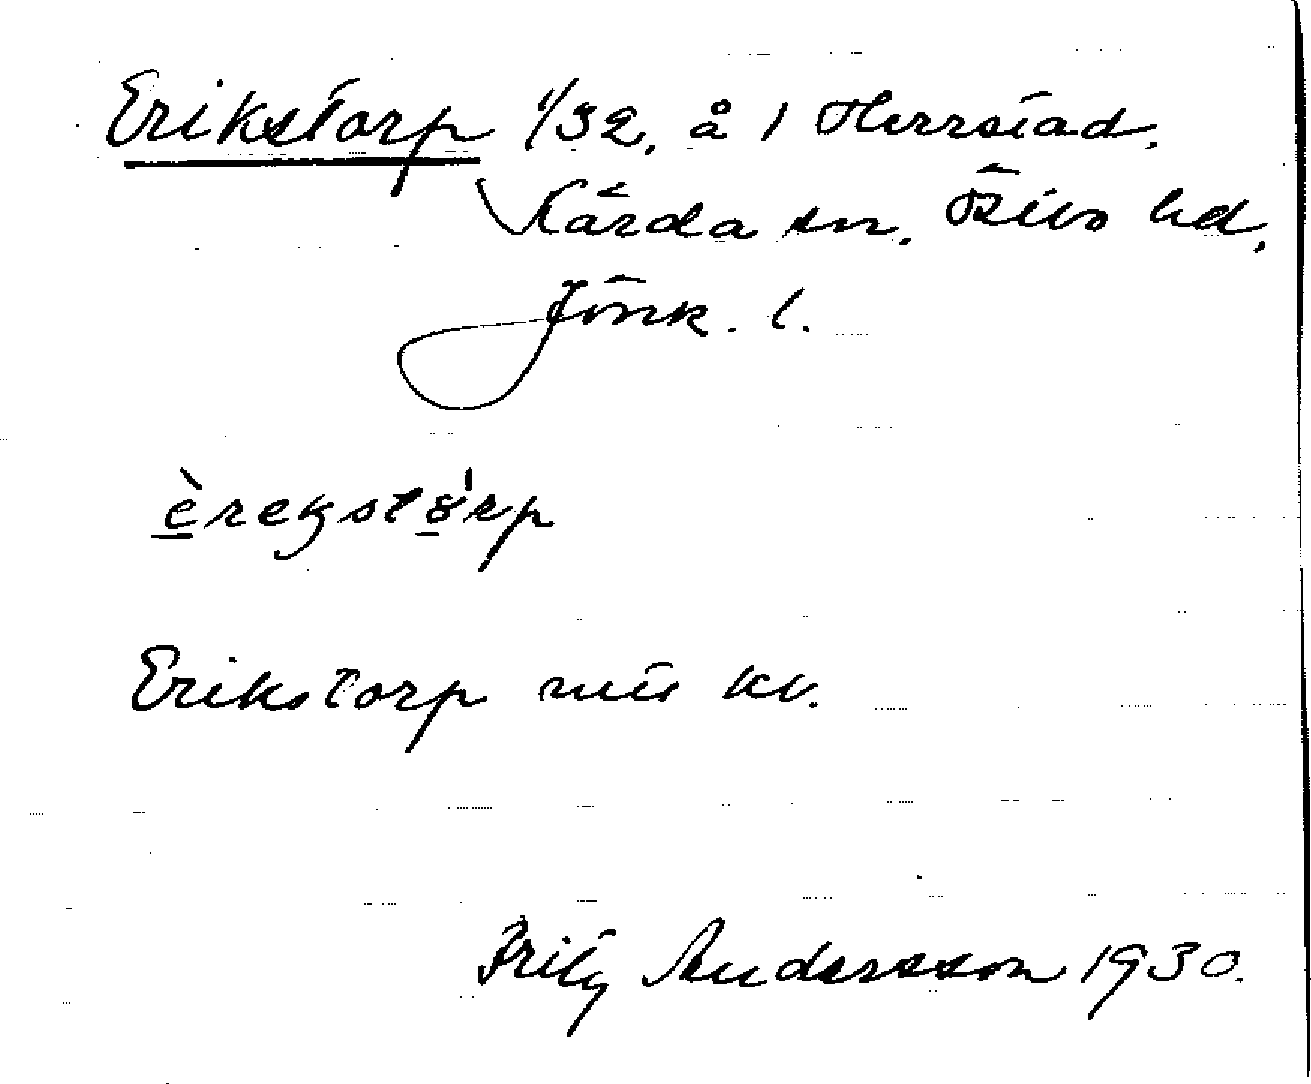 Erikstorp 1/32, å 1 Herrstad,
Kärda sn. Östbo hd,
Jönk. l.
èrekstórp
Erikstorp kv.
Fritz Andersson 1930.